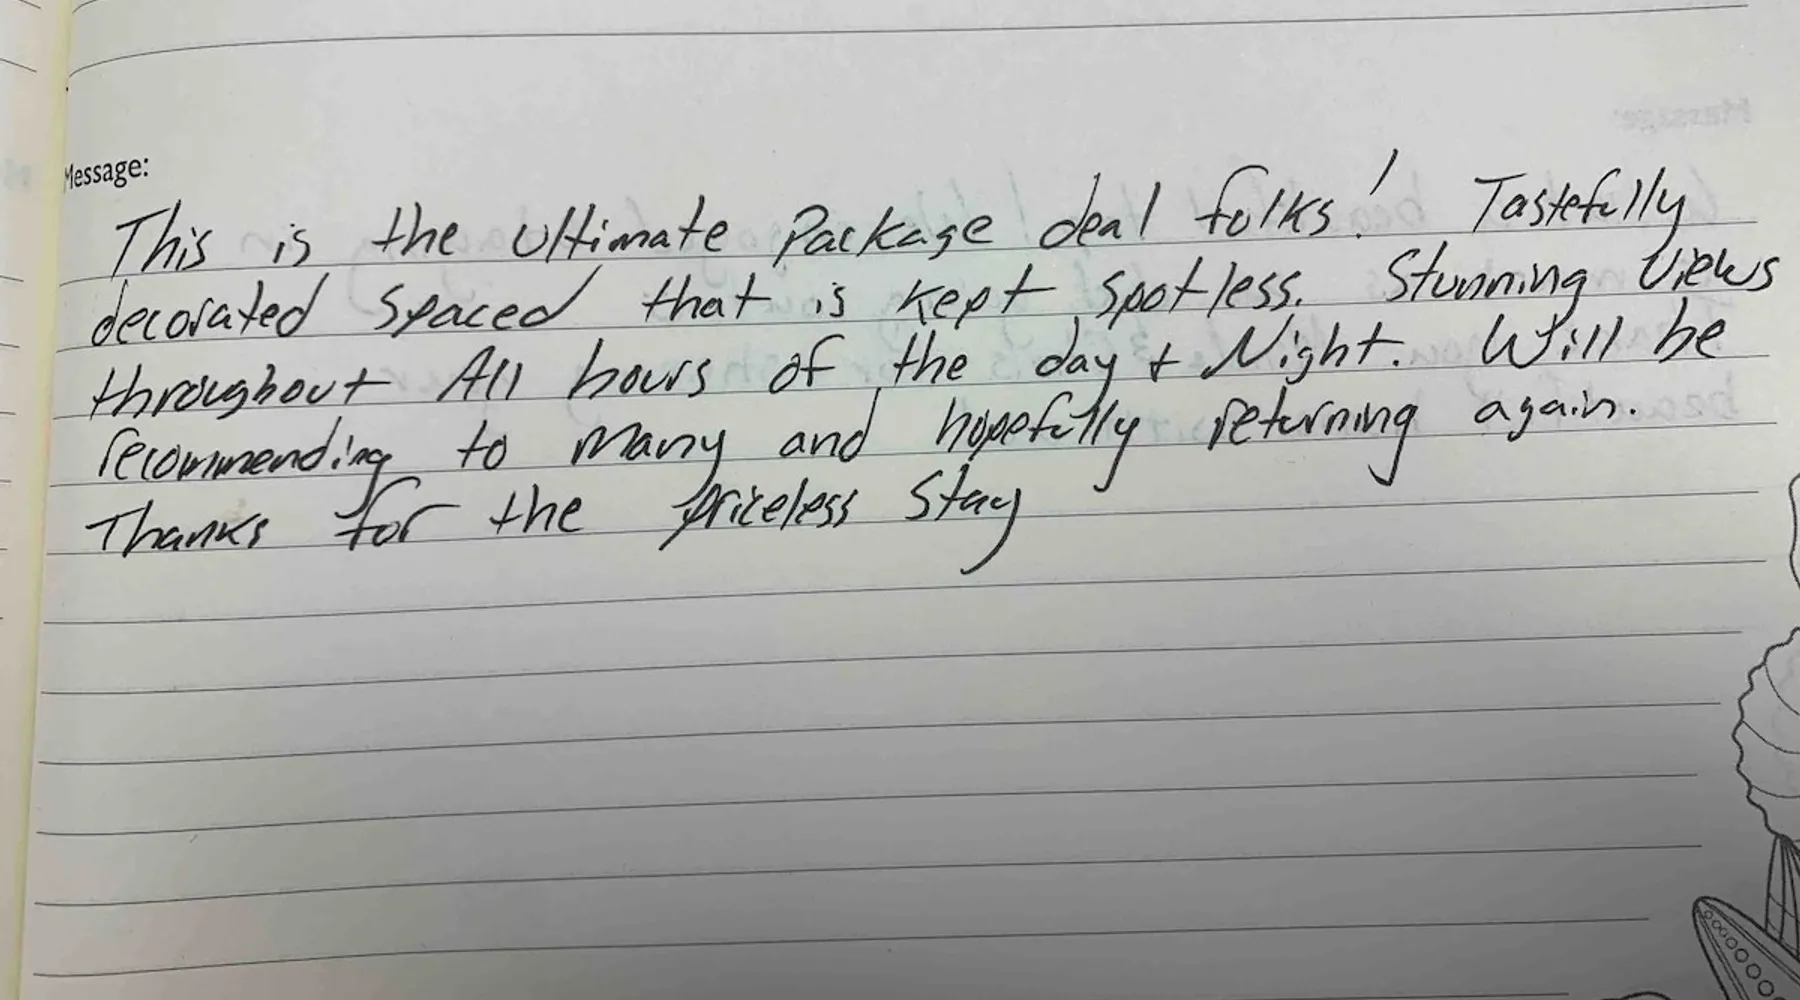 Message:
This is the ultimate Package deal folks! Tastefully
decorated Spaced that is kept spotless. Stunning Views
throughout All hours of the day + Night. Will be
recommending to many and hopefully returning again.
Thanks for the priceless Stay